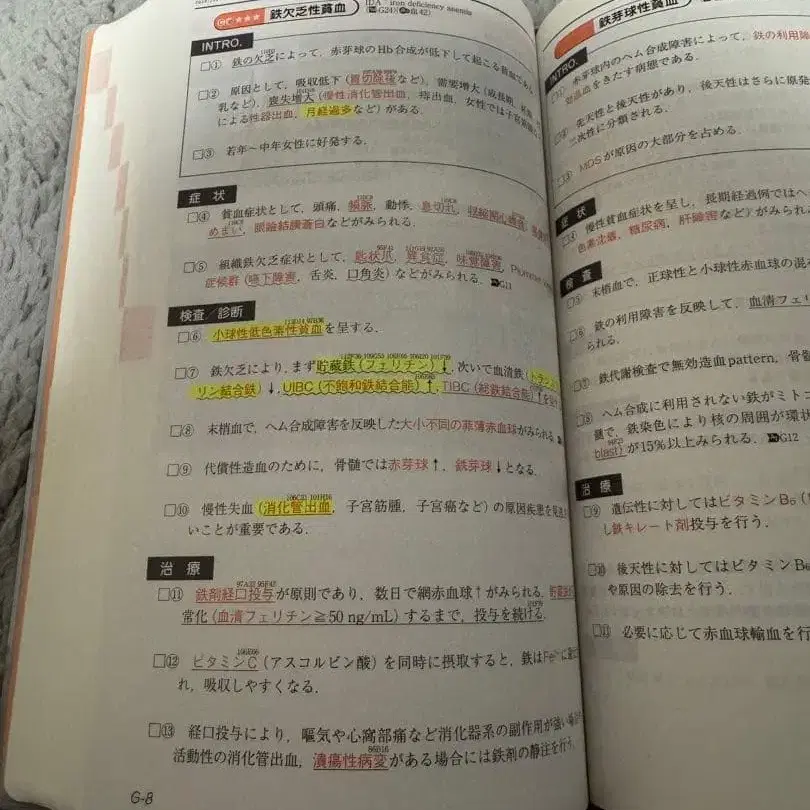 鉄欠乏性貧血
IDA : iron deficiency anemia
INTRO.
□① 鉄の欠乏によって，赤芽球のHb合成が低下して起こる貧血で
□② 原因として，吸収低下（胃切除後など），需要増大（成長期，
乳など），喪失増大（慢性消化管出血，痔出血，女性では子宮
による性器出血，月経過多など）がある．
□③ 若年〜中年女性に好発する．
症 状
□④ 貧血症状として，頭痛，頻脈，動悸，息切れ，収縮期心雑音，
めまい，眼瞼結膜蒼白などがみられる．
□⑤ 組織鉄欠乏症状として，匙状爪，異食症，味覚障害，Plummer
症候群（嚥下障害，舌炎，口角炎）などがみられる．G11
検査／診断
□⑥ 小球性低色素性貧血を呈する．
□⑦ 鉄欠乏により，まず貯蔵鉄（フェリチン）↓，次いで血清鉄（トランス
リン結合鉄）↓，UIBC（不飽和鉄結合能）↑，TIBC（総鉄結合能）↑
□⑧ 末梢血で，ヘム合成障害を反映した大小不同の菲薄赤血球がみられる．
□⑨ 代償性造血のために，骨髄では赤芽球↑，鉄芽球↓となる．
□⑩ 慢性失血（消化管出血，子宮筋腫，子宮癌など）の原因疾患を
いことが重要である．
治 療
□⑪ 鉄剤経口投与が原則であり，数日で網赤血球↑がみられる．貯蔵鉄
常化（血清フェリチン≧50 ng/mL）するまで，投与を続ける．
□⑫ ビタミンC（アスコルビン酸）を同時に摂取すると，鉄はFe²⁺に
れ，吸収しやすくなる．
□⑬ 経口投与により，嘔気や心窩部痛など消化器系の副作用が強い場合
活動性の消化管出血，潰瘍性病変がある場合には鉄剤の静注を行う．
G-8
鉄芽球性貧血
INTRO.
赤芽球内のヘム合成障害によって，鉄の利用障
効造血をきたす病態である．
先天性と後天性があり，後天性はさらに原発
二次性に分類される．
MDSが原因の大部分を占める．
症 状
慢性貧血症状を呈し，長期経過例ではヘ
色素沈着，糖尿病，肝障害など）がみられ
検 査
□⑤ 末梢血で，正球性と小球性赤血球の混
□⑥ 鉄の利用障害を反映して，血清フェリ
られる．
□⑦ 鉄代謝検査で無効造血pattern，骨髄
□⑧ ヘム合成に利用されない鉄がミトコ
髄で，鉄染色により核の周囲が環状
blast）が15％以上みられる．G12
治 療
□⑨ 遺伝性に対してはビタミンB₆（
し鉄キレート剤投与を行う．
□⑩ 後天性に対してはビタミンB₆
や原因の除去を行う．
□⑪ 必要に応じて赤血球輸血を行